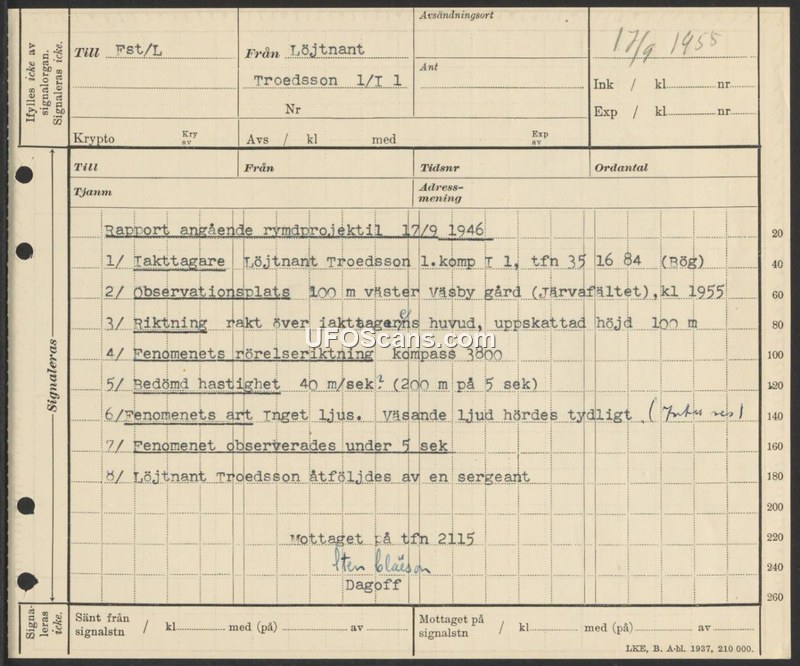 Ifylles icke av
signalorgan.
Signaleras icke.
Till Fst/L
Från Löjtnant
Troedsson 1/I 1
Nr
Krypto Kry av
Avs / kl med Exp av
Avsändningsort
Ant
17/9 1955
Ink / kl nr
Exp / kl nr
Till Från Tidsnr Ordantal
Tjanm Adress-
mening
Signaleras
Rapport angående rymdprojektil 17/9 1946 20
1/ Iakttagare Löjtnant Troedsson 1.komp I 1, tfn 35 16 84 (Bög) 40
2/ Observationsplats 100 m väster Väsby gård (Järvafältet), kl 1955 60
3/ Riktning rakt över iakttagarens huvud, uppskattad höjd 100 m 80
UFOScans.com
4/ Fenomenets rörelseriktning kompass 3800 100
5/ Bedömd hastighet 40 m/sek? (200 m på 5 sek) 120
6/Fenomenets art Inget ljus. Väsande ljud hördes tydligt. 140
7/ Fenomenet observerades under 5 sek 160
8/ Löjtnant Troedsson åtföljdes av en sergeant 180
200
Mottaget på tfn 2115 220
Sten Claëson 240
Dagoff 260
Signa-
leras
icke.
Sänt från
signalstn / kl med (på) av
Mottaget på
signalstn / kl med (på) av
LKE, B. A-bl. 1937, 210 000.